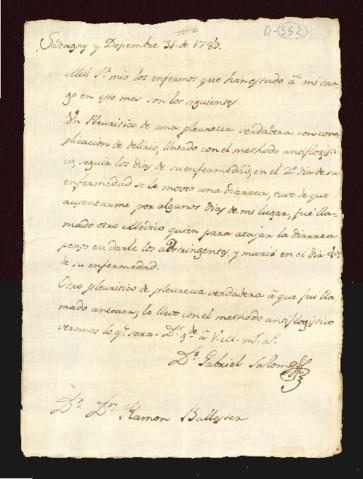 D-(352)
y Desembre 31. de 1785.
Mui Sr. mio los enfermos que han estado â mi car-
go en este mes son los siguientes
Un Pleuritico de una pleurecia verdadera con com-
plicacion de delirio, llevado con el methodo antiflogisti-
co, seguia los dias de su enfermedad, en el 2º. dia de su
enfermedad se le movio una diarrea, tuve de que
ausentarme por algunos dias de mi lugar, fue lla-
mado otro Medico quien para atajar la diarrea
penso en darle los adstringentes, y murió en el dia
de su enfermedad.
Otro pleuritico de pleurecia verdadera â que fui lla-
mado anteaer, lo llevo con el methodo antiflogistico
veremos lo q. sera. Ds. gde. â Vm. ms. as.
Dr. Gabriel Salom
Dr. Dn. Ramon Ballester